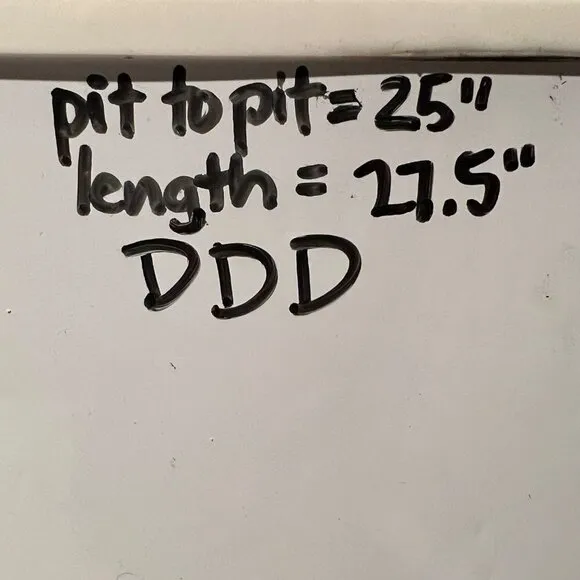 pit to pit = 25"
length = 27.5"
DDD